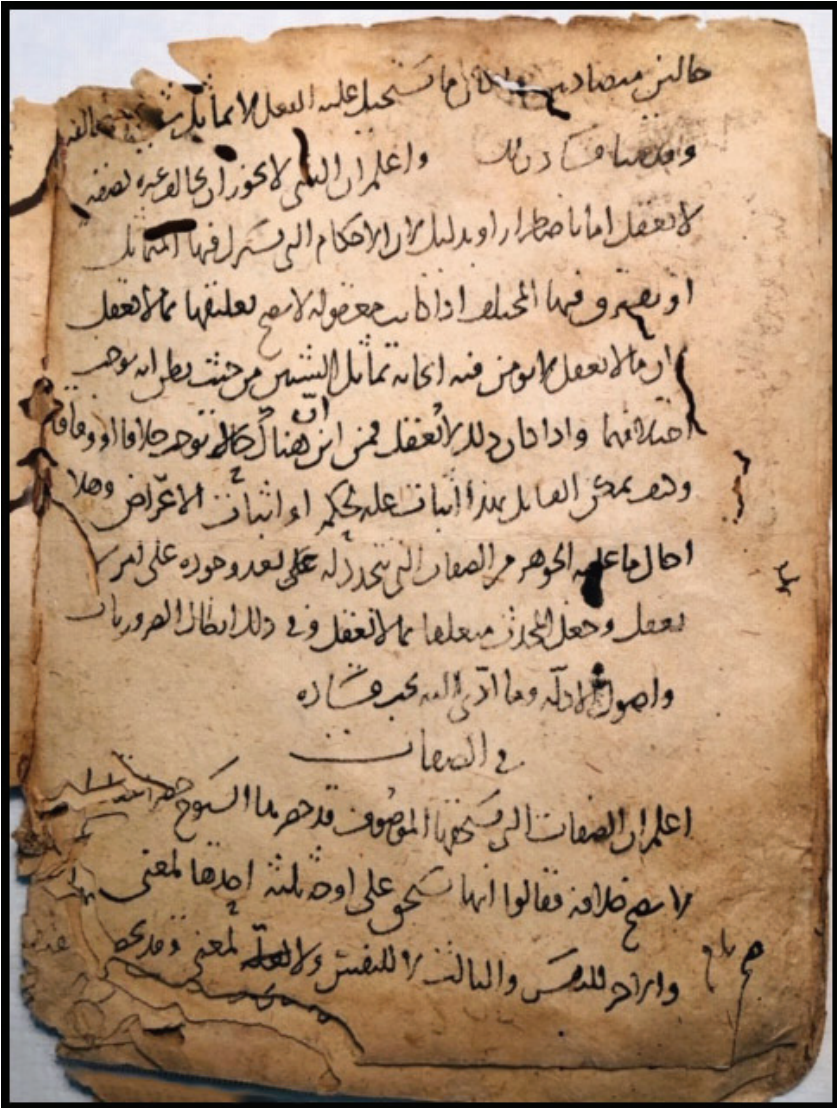 حالتين متضادتين ما يستحيل عليه الفعل لا يماثل
واعلم ان الشي لا يجوز ان يخالف غيره بصفه
لا تعقل اما باضطرار او بدليل لان الاحكام التي يشترك فيها المتماثل
او يفترق فيها المختلف اذا كانت معقوله لا يصح تعليقها بما لا يعقل
لان ما لا يعقل لا يومن فيه ايجابه تماثل الشيئين من حيث يظن انه يوجب
اختلافهما واذا كان ذلك لا يعقل فمن اين ان هناك حالا توجب خلافا او وفاقا
وكيف يمكن القايل بهذا اثبات عله لحكم او اثبات الاعراض وهلا
احال ما عليه الجوهر من الصفات التي تتجدد له على بعد وجوده على امر لا
يعقل وجعل المحدث متعلقا بما لا يعقل وفي ذلك ابطال الضروريات
واصول الادله وما ادى اليه يجب فساده
في الصفات
اعلم ان الصفات التي يستحقها الموصوف قد حصرها الشيوخ حصرا
لا يصح خلافه فقالوا انها تستحق على اوجه ثلثه احدها لمعنى
والاخر للنفس والثالث لا للنفس ولا لمعنى وقد
صح